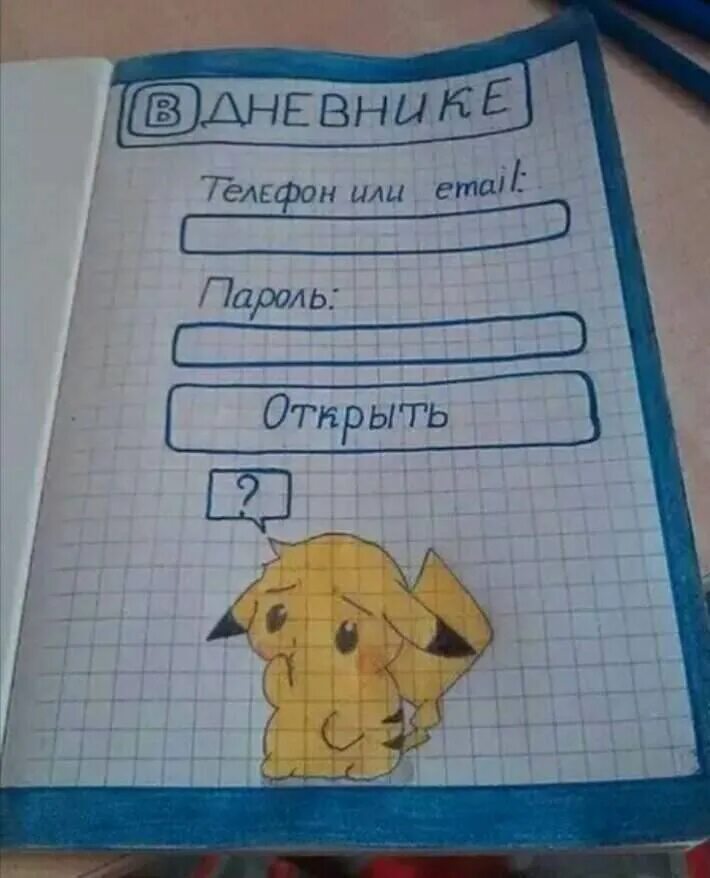 В ДНЕВНИКЕ
Телефон или email:
Пароль:
Открыть
?